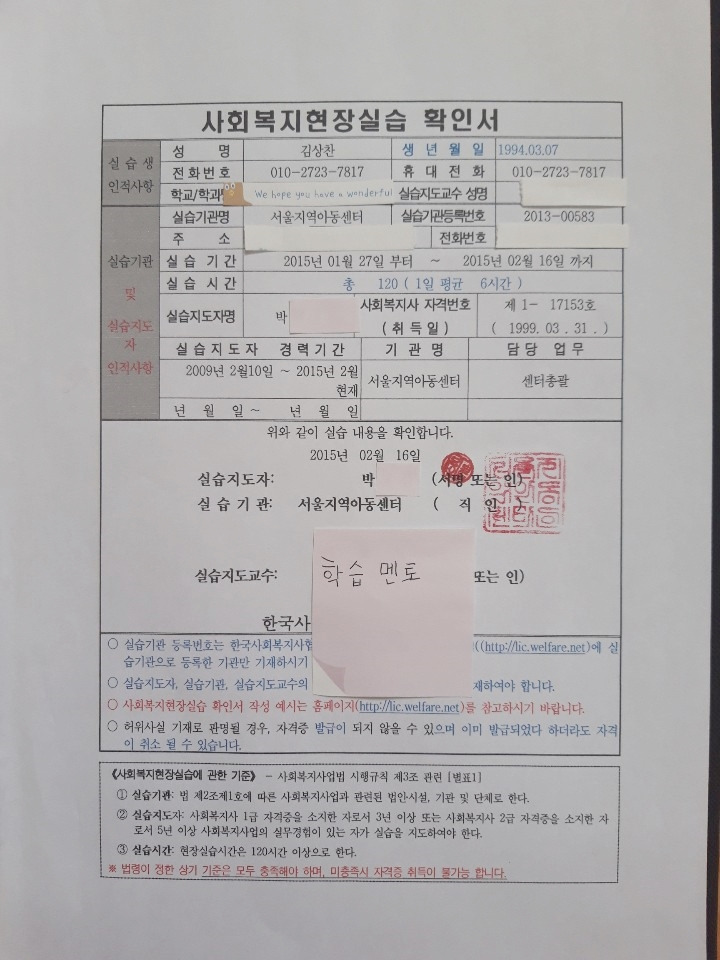 사회복지현장실습 확인서
실습생 인적사항
성 명 김상찬 생년월일 1994.03.07
전화번호 010-2723-7817 휴대전화 010-2723-7817
학교/학과명 We hope you have a wonderful 실습지도교수 성명
실습기관 및 실습지도자 인적사항
실습기관명 서울지역아동센터 실습기관등록번호 2013-00583
주 소 전화번호
실습기간 2015년 01월 27일 부터 ~ 2015년 02월 16일 까지
실습시간 총 120 ( 1일 평균 6시간 )
실습지도자명 박 사회복지사 자격번호 제 1- 17153호
( 취득일 ) ( 1999. 03 . 31 . )
실습지도자 경력기간 기관명 담당 업무
2009년 2월10일 ~ 2015년 2월 현재 서울지역아동센터 센터총괄
년 월 일 ~ 년 월 일
위와 같이 실습 내용을 확인합니다.
2015년 02월 16일
실습지도자: 박 (서명 또는 인)
실습기관: 서울지역아동센터 ( 직 인 )
학습 멘토
실습지도교수: 또는 인)
한국사
○ 실습기관 등록번호는 한국사회복지사협 ((http://lic.welfare.net)에 실
습기관으로 등록한 기관만 기재하시기
○ 실습지도자, 실습기관, 실습지도교수의 재하여야 합니다.
○ 사회복지현장실습 확인서 작성 예시는 홈페이지(http://lic.welfare.net)를 참고하시기 바랍니다.
○ 허위사실 기재로 판명될 경우, 자격증 발급이 되지 않을 수 있으며 이미 발급되었다 하더라도 자격
이 취소 될 수 있습니다.
《사회복지현장실습에 관한 기준》 - 사회복지사업법 시행규칙 제3조 관련 [별표1]
① 실습기관: 법 제2조제1호에 따른 사회복지사업과 관련된 법인시설, 기관 및 단체로 한다.
② 실습지도자: 사회복지사 1급 자격증을 소지한 자로서 3년 이상 또는 사회복지사 2급 자격증을 소지한 자
로서 5년 이상 사회복지사업의 실무경험이 있는 자가 실습을 지도하여야 한다.
③ 실습시간: 현장실습시간은 120시간 이상으로 한다.
※ 법령이 정한 상기 기준은 모두 충족해야 하며, 미충족시 자격증 취득이 불가능 합니다.